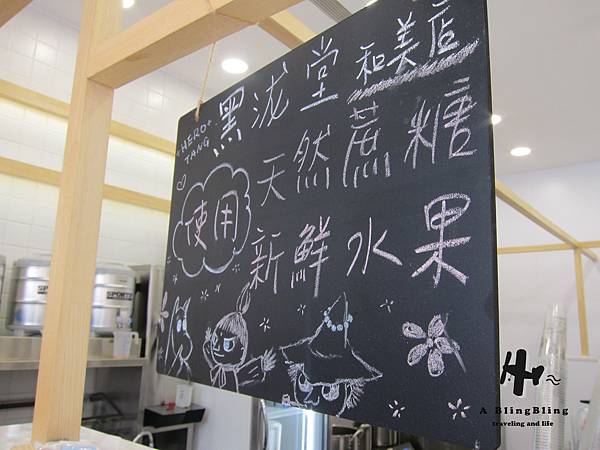 黑泷堂 和美店
"HERO"
TANG
使用 天然蔗糖
新鮮水果
SPORTS
A BlingBling
traveling and life